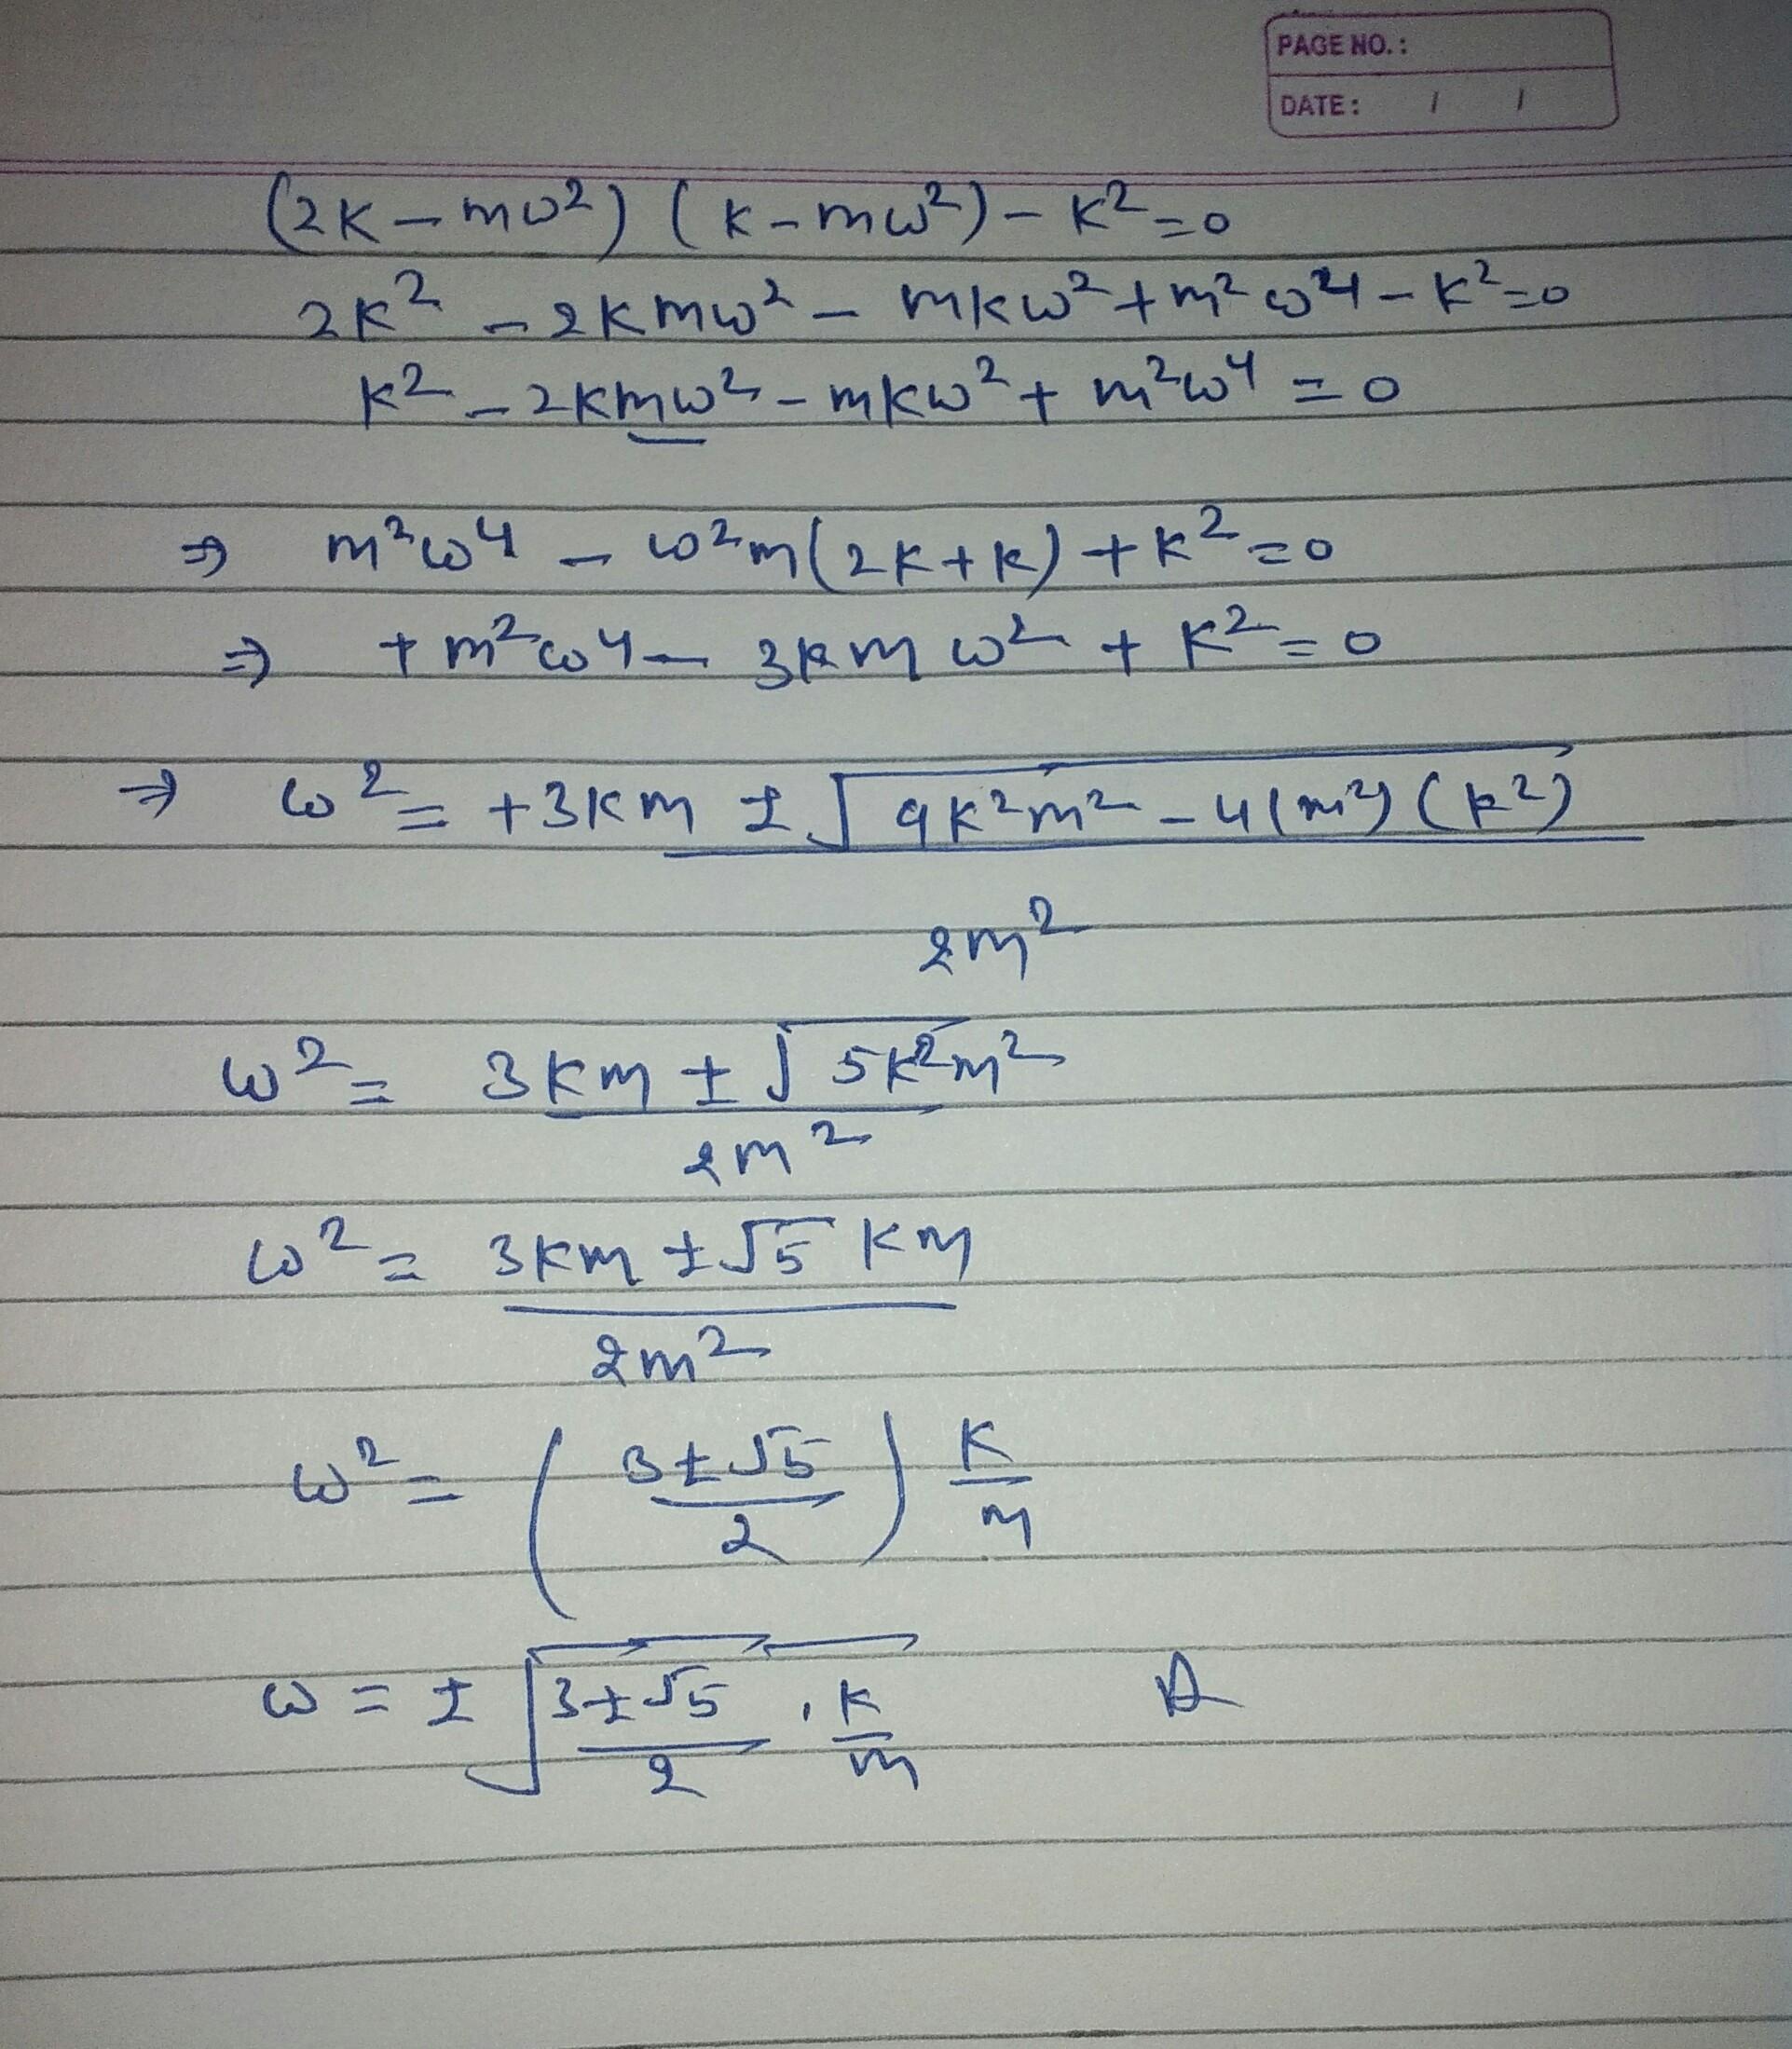 PAGE NO.:
DATE: / /
(2K - mω²) (K - mω²) - K² = 0
2K² - 2Kmω² - mKω² + m²ω⁴ - K² = 0
K² - 2Kmω² - mKω² + m²ω⁴ = 0
⇒ m²ω⁴ - ω²m(2K + K) + K² = 0
⇒ + m²ω⁴ - 3Kmω² + K² = 0
⇒ ω² = +3Km ± √9K²m² - 4(m²)(K²)
2m²
ω² = 3Km ± √5K²m²
2m²
ω² = 3Km ± √5 Km
2m²
ω² = (3 ± √5 / 2) K/m
ω = ± √3 ± √5 / 2 . K/m